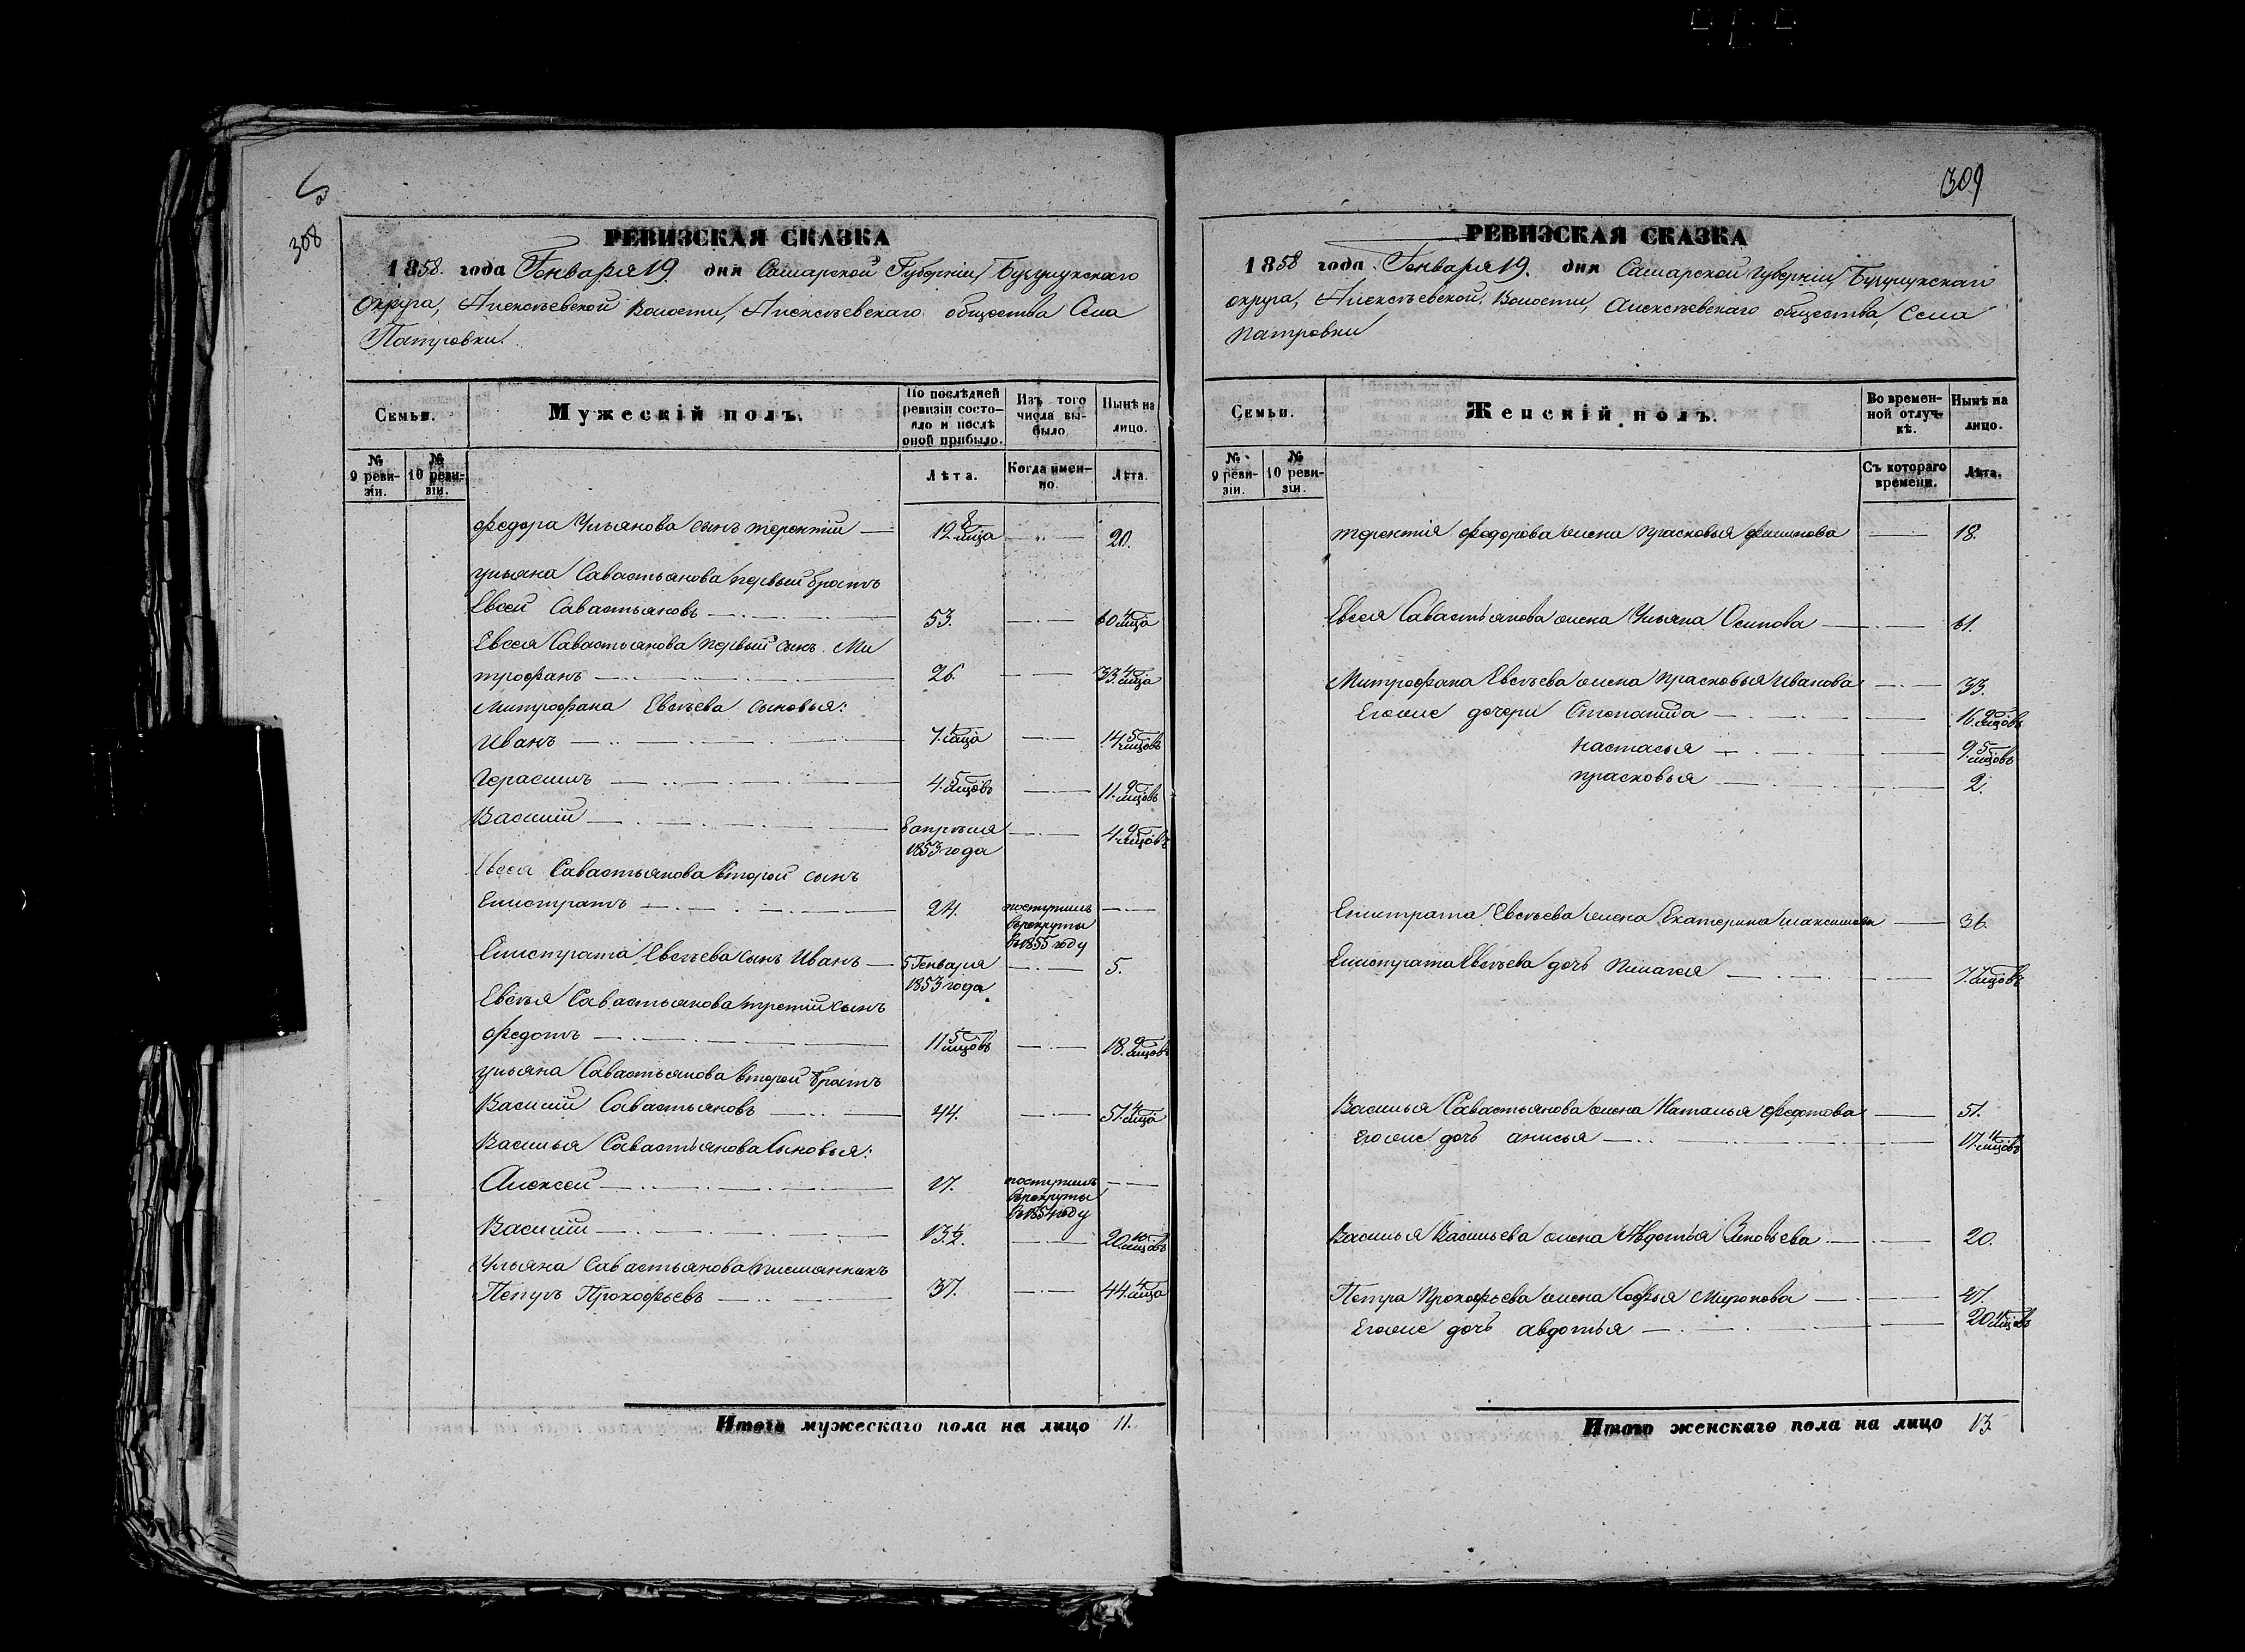 308
РЕВИЗСКАЯ СКАЗКА
1858. года Генваря 19. дня Самарской Губерніи, Бузулукскаго
Округа, Алексѣевской Волости, Алексѣевскаго общества Села
Патровки.
Семьи.
Мужескій полъ.
По послѣдней ревизіи состояло и послѣ оной прибыло.
Изъ того числа выбыло.
Нынѣ на лицо.
№ 9 ревизіи.
№ 10 ревизіи.
Лѣта.
Когда именно.
Лѣта.
Федора Ульянова сынъ терентій — 12 8 мѣца — 20.
ульяна Савастьянова первый братъ
Евсей Савастьяновъ — 53. — 60 4 мѣца
Евсея Савастьянова первый сынъ Ми
трофанъ — 26. — 33. 4 мѣца
Митрофана Евсѣева сыновья:
Иванъ — 7. мѣца — 14. 5 мѣцовъ
Герасимъ — 4. 5 мѣцовъ — 11. 9 мѣцовъ
Василій — 8 апрѣля 1853 года — 4. 9 мѣцовъ
Евсея Савастьянова второй сынъ
Елистратъ — 24. поступилъ в рекруты въ 1855 году —
Елистрата Евсѣева сынъ Иванъ — 5 Генваря 1853 года — 5.
Евсѣя Савастьянова третій сынъ
Федотъ — 11 5 мѣцовъ — 18. 9 мѣцовъ
ульяна Савастьянова второй братъ
Василій Савастьяновъ — 44. — 51. 4 мѣца
Василья Савастьянова сыновья:
Алексей — 17. поступилъ в рекруты въ 1854 году —
Василій — 13 1/2. — 20. 10 мѣцовъ
Ульяна Савастьянова племянникъ
Петръ Прокофьевъ — 37. — 44. 4 мѣца
Итого мужескаго пола на лицо 11.
309
РЕВИЗСКАЯ СКАЗКА
1858 года Генваря 19. дня Самарской губерніи, Бузулукскаго
округа, Алексѣевской Волости, Алексѣевскаго общества, Села
Патровки
Семьи.
Женскій полъ.
Во временной отлучкѣ.
Нынѣ на лицо.
№ 9 ревизіи.
№ 10 ревизіи.
Съ котораго времени.
Лѣта.
терентія Федорова жена прасковья филипова — 18.
Евсея Савастьянова жена Ульяна Осипова — 61.
Митрофана Евсѣева жена прасковья Иванова — 33.
Егоже дочери Степанида — 16. 9 мѣцовъ
настасья — 9. 5 мѣцовъ
прасковья — 2.
Елистрата Евсѣева жена Екатерина максимова — 36.
Елистрата Евсѣева дочь Пелагея — 7. 7 мѣцовъ
Василья Савастьянова жена Наталья Федотова — 51.
Егоже дочь анисья — 17. 11 мѣцовъ
Василья Васильева жена Авдотья Зиновьева — 20.
Петра Прокофьева жена Софья Миронова — 47.
Егоже дочь авдотья — 20. мѣцовъ
Итого женскаго пола на лицо 13.